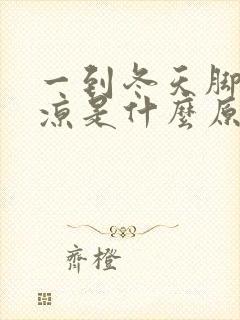 一到冬天脚
凉是什麽原
齊橙